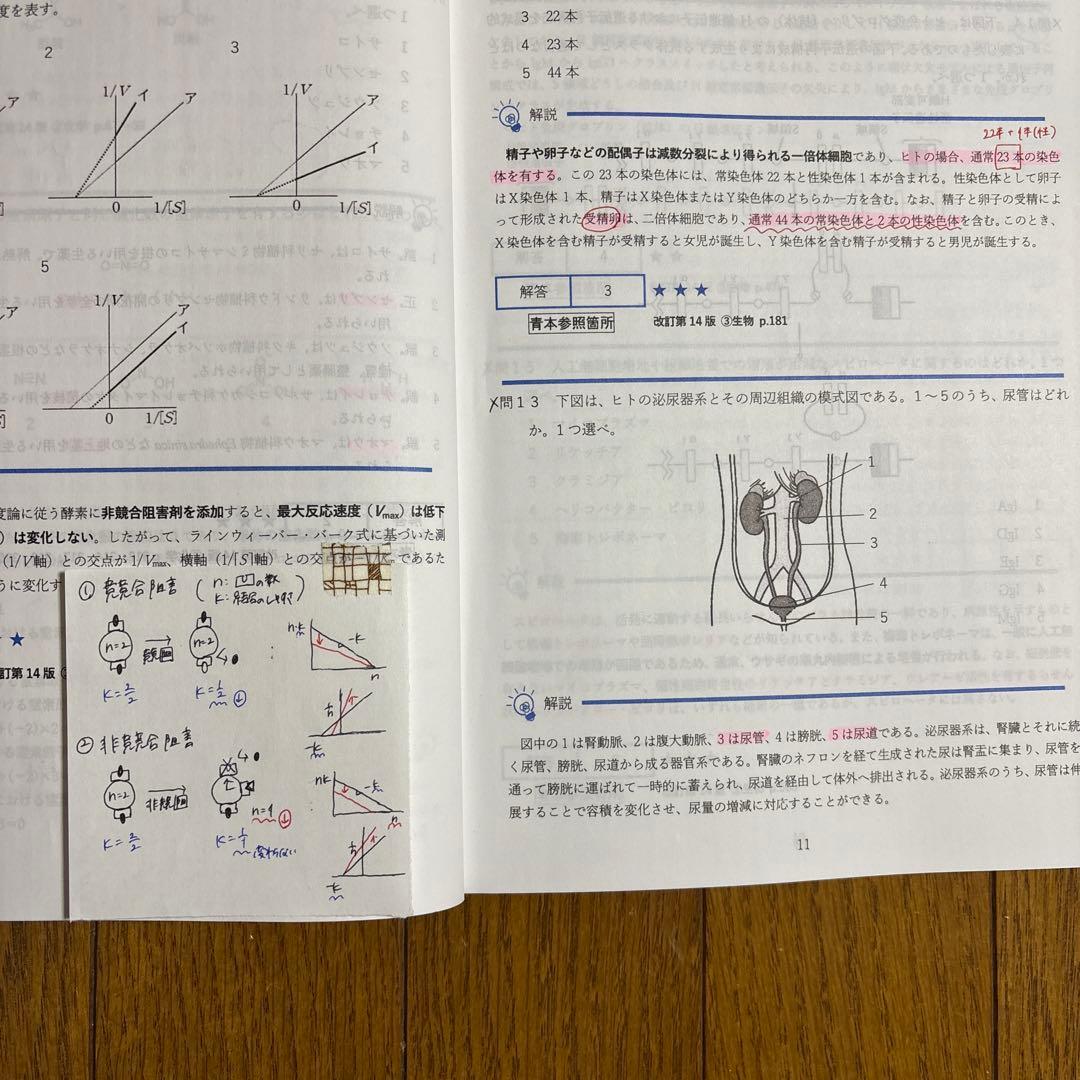 度を表す。
2
3
ア
1/V
イ
ア
0
1/[S]
1/V
ア
イ
0
1/[S]
5
1/V
ア
イ
0
1/[S]
度論に従う酵素に非競合阻害剤を添加すると、最大反応速度（Vmax）は低下
）は変化しない。したがって、ラインウィーバー・バーク式に基づいた測
（1/V軸）との交点が 1/Vmax、横軸（1/[S]軸）との交点が
であるた
うに変化す
★
訂第 14 版
① 競合阻害
n=2
n=2
K=2/2
K=1/2
n
② 非競合阻害
n=2
n=1
K=2/2
K=1/1
変わらない
3 22 本
4 23 本
5 44 本
解説
22本+1本(性)
精子や卵子などの配偶子は減数分裂により得られる一倍体細胞であり、ヒトの場合、通常 23 本の染色
体を有する。この 23 本の染色体には、常染色体 22 本と性染色体 1 本が含まれる。性染色体として卵子
はX染色体 1 本、精子はX染色体またはY染色体のどちらか一方を含む。なお、精子と卵子の受精によ
って形成された受精卵は、二倍体細胞であり、通常 44 本の常染色体と 2 本の性染色体を含む。このとき、
X染色体を含む精子が受精すると女児が誕生し、Y染色体を含む精子が受精すると男児が誕生する。
解答 3 ★★★
青本参照箇所 改訂第 14 版 ③生物 p.181
問13 下図は、ヒトの泌尿器系とその周辺組織の模式図である。1～5のうち、尿管はどれ
か。1つ選べ。
1
2
3
4
5
解説
図中の 1 は腎動脈、2 は腹大動脈、3 は尿管、4 は膀胱、5 は尿道である。泌尿器系は、腎臓とそれに続
く尿管、膀胱、尿道から成る器官系である。腎臓のネフロンを経て生成された尿は腎盂に集まり、尿管を
通って膀胱に運ばれて一時的に蓄えられ、尿道を経由して体外へ排出される。泌尿器系のうち、尿管は伸
展することで容積を変化させ、尿量の増減に対応することができる。
11